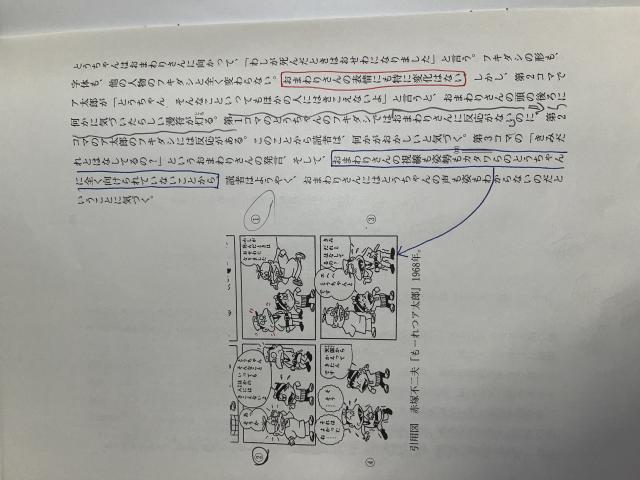 とうちゃんはおまわりさんに向かって、「わしが死んだときはおせわになりました」と言う。フキダシの形も、
字体も、他の人物のフキダシと全く変わらない。おまわりさんの表情にも特に変化はない。しかし、第２コマで
ア太郎が「とうちゃん、そんなこといってもほかの人にはきこえないよ」と言うと、おまわりさんの頭の後ろに
何かに気づいたらしい漫符が灯る。第１コマのとうちゃんのフキダシではおまわりさんに反応がないのに、第２
コマのア太郎のフキダシには反応がある。このことから読者は、何かがおかしいと気づく。第３コマの「きみだ
れとはなしてるの？」というおまわりさんの発言、そして、おまわりさんの視線も姿勢もカタワらのとうちゃん
に全く向けられていないことから、読者はようやく、おまわりさんにはとうちゃんの声も姿もわからないのだと
いうことに気づく。
①
②
③
④
引用図　赤塚不二夫『もーれつア太郎』1968年。